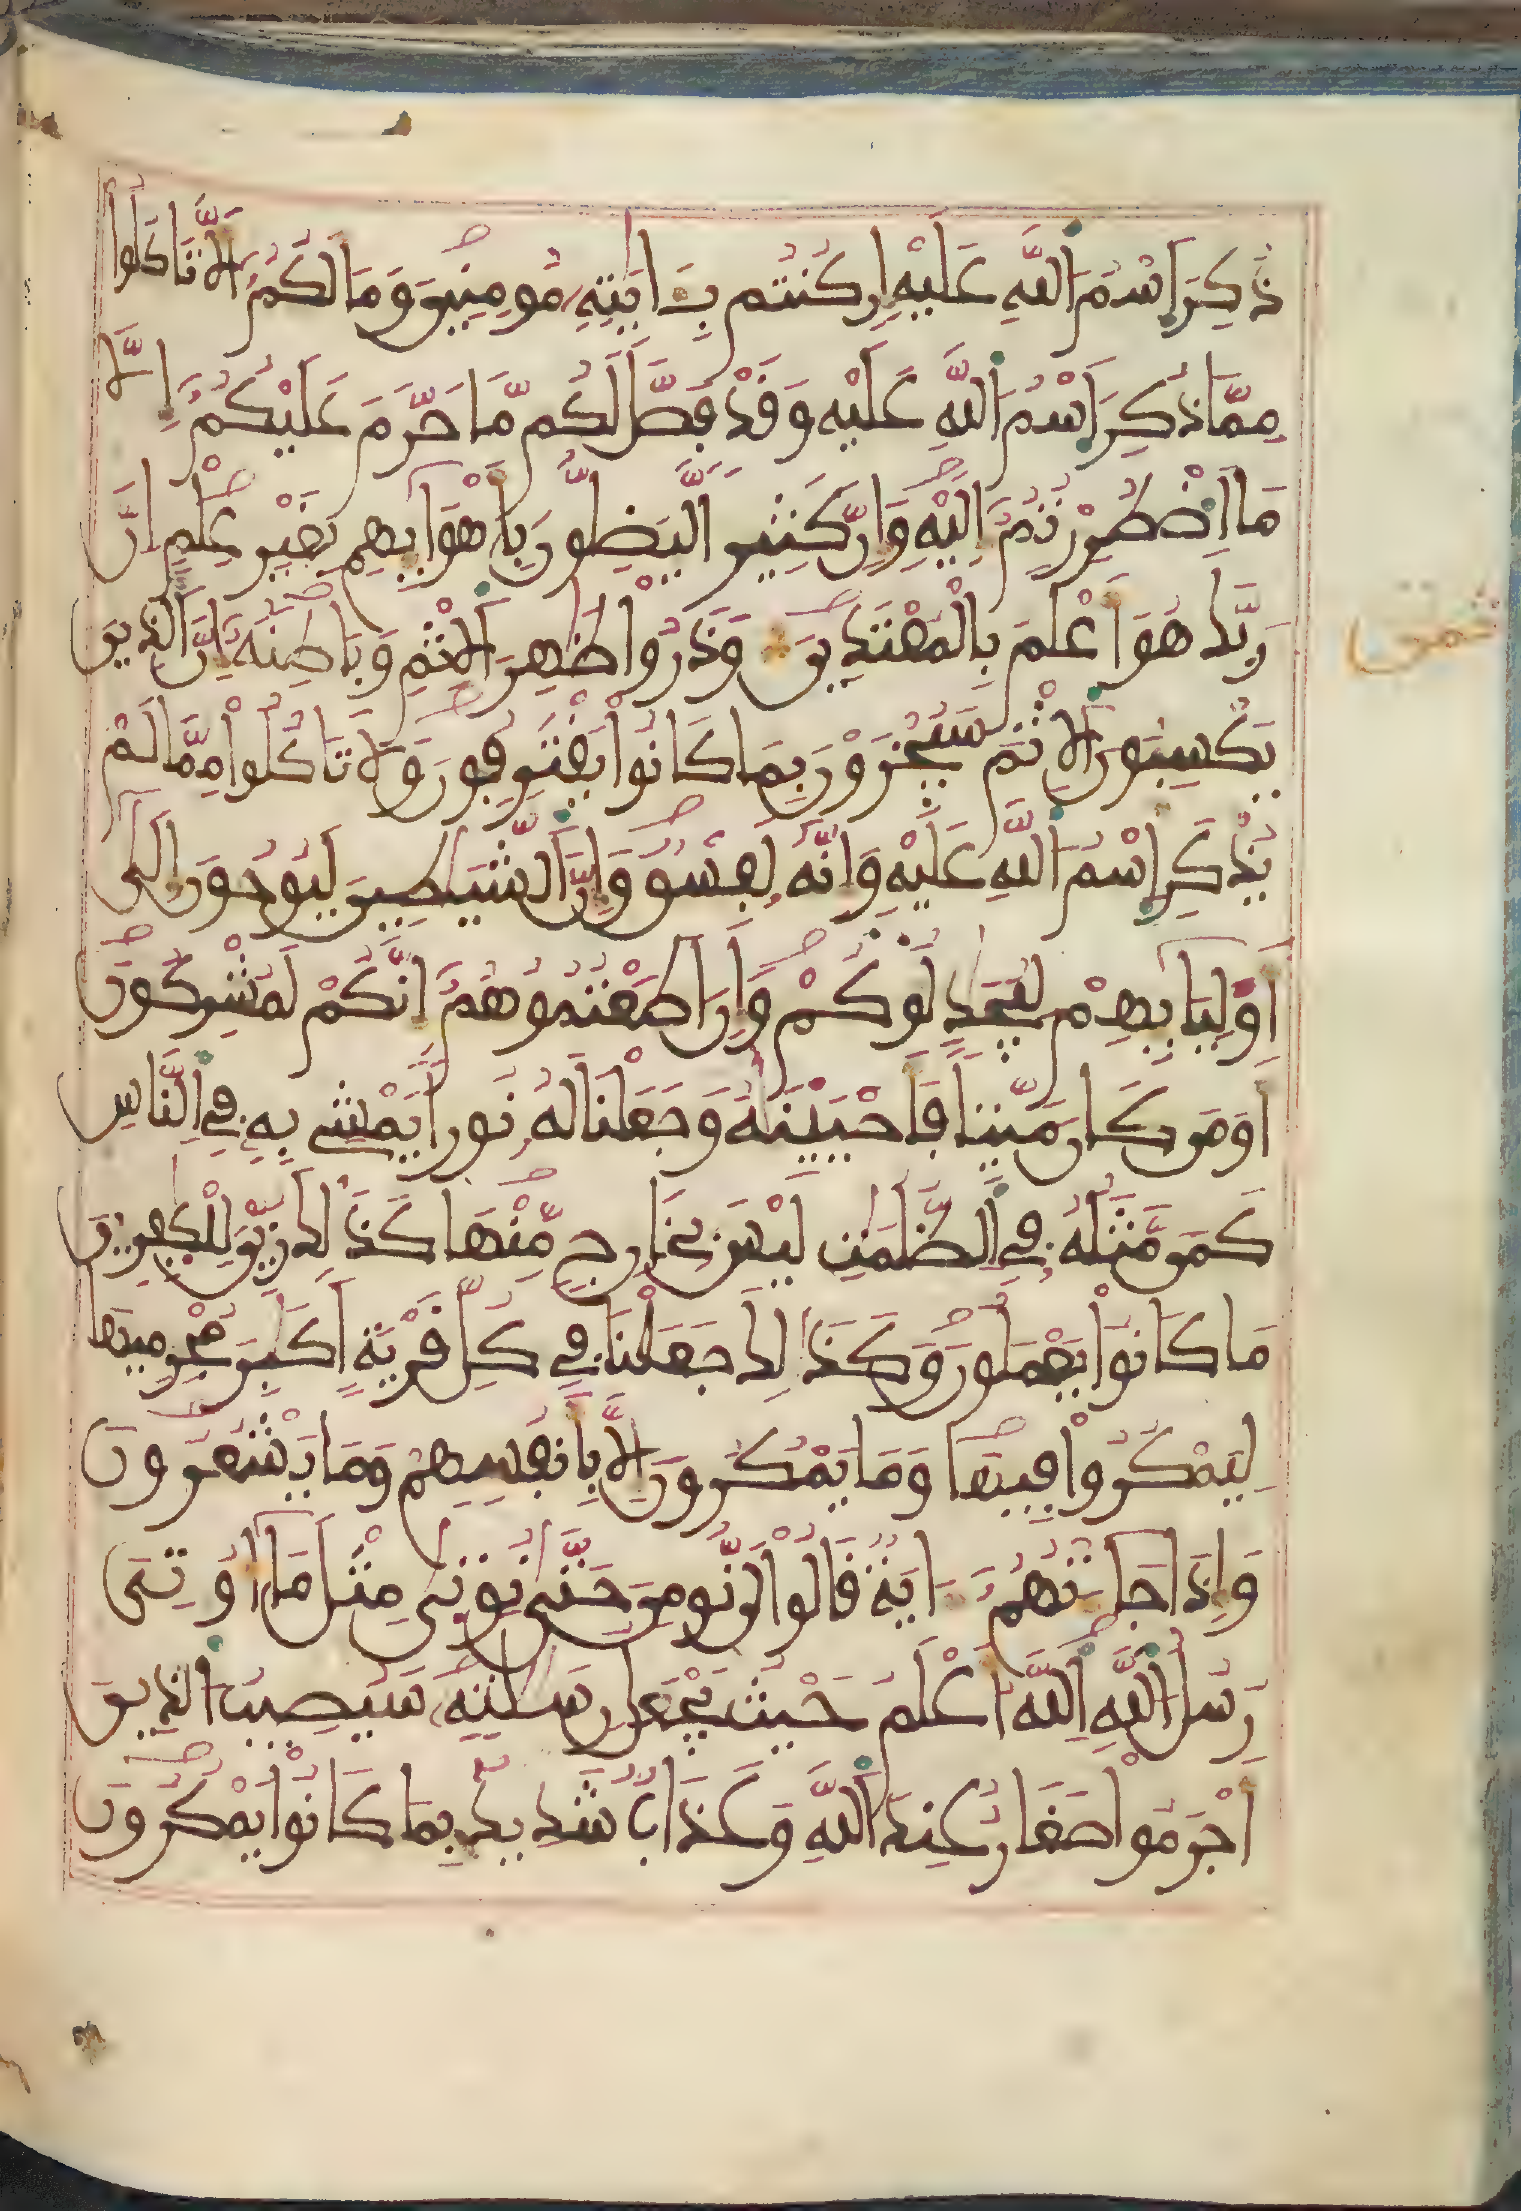 ذُكِرَ اَسْمُ اُللَّهِ عَلَيْهِ إِن كُنتُم بِـَٔايَٰتِهِۦ مُومِنِينَ وَمَا لَكُمُۥٓ أَلَّا تَاكُلُوا
مِمَّا ذُكِرَ اَسْمُ اُللَّهِ عَلَيْهِ وَقَدْ فَصَّلَ لَكُم مَّا حَرَّمَ عَلَيْكُمُۥٓ إِلَّا
مَا اَضْطُرِرْتُمُۥٓ إِلَيْهِ وَإِنَّ كَثِيراً لَّيَضِلُّونَ بِأَهْوَآئِهِم بِغَيْرِ عِلْمٍ اِنَّ
رَبَّكَ هُوَ أَعْلَمُ بِالْمُعْتَدِينَ وَذَرُوا ظَٰهِرَ اَلِاثْمِ وَبَاطِنَهُۥٓ إِنَّ اَلذِينَ
يَكْسِبُونَ اَلِاثْمَ سَيُجْزَوْنَ بِمَا كَانُوا يَقْتَرِفُونَ وَلَا تَاكُلُوا مِمَّا لَمْ
يُذْكَرِ اِسْمُ اُللَّهِ عَلَيْهِ وَإِنَّهُۥ لَفِسْقٌ وَإِنَّ اَلشَّيَٰطِينَ لَيُوحُونَ إِلَىٰٓ
أَوْلِيَآئِهِمْ لِيُجَٰدِلُوكُمْ وَإِنَ اَطَعْتُمُوهُمُۥٓ إِنَّكُمْ لَمُشْرِكُونَ
أَوَمَن كَانَ مَيِّتاً فَأَحْيَيْنَٰهُ وَجَعَلْنَا لَهُۥ نُوراً يَمْشِے بِهِۦ فِے اِلنَّاسِ
كَمَن مَّثَلُهُۥ فِے اِلظُّلُمَٰتِ لَيْسَ بِخَارِجٍ مِّنْهَا كَذَٰلِكَ زُيِّنَ لِلْكَٰفِرِينَ
مَا كَانُوا يَعْمَلُونَ وَكَذَٰلِكَ جَعَلْنَا فِے كُلِّ قَرْيَةٍ أَكَٰبِرَ مُجْرِمِيهَا
لِيَمْكُرُوا فِيهَا وَمَا يَمْكُرُونَ إِلَّا بِأَنفُسِهِمْ وَمَا يَشْعُرُونَ
وَإِذَا جَآءَتْهُمُۥٓ ءَايَةٌ قَالُوا لَن نُّومِنَ حَتَّىٰ نُوتَىٰ مِثْلَ مَآ أُوتِىَ
رُسُلُ اُللَّهِ اِللَّهُ أَعْلَمُ حَيْثُ يَجْعَلُ رِسَٰلَٰتِهِۦ سَيُصِيبُ اُلذِينَ
أَجْرَمُوا صَغَارٌ عِندَ اَللَّهِ وَعَذَابٌ شَدِيدٌ بِمَا كَانُوا يَمْكُرُونَ